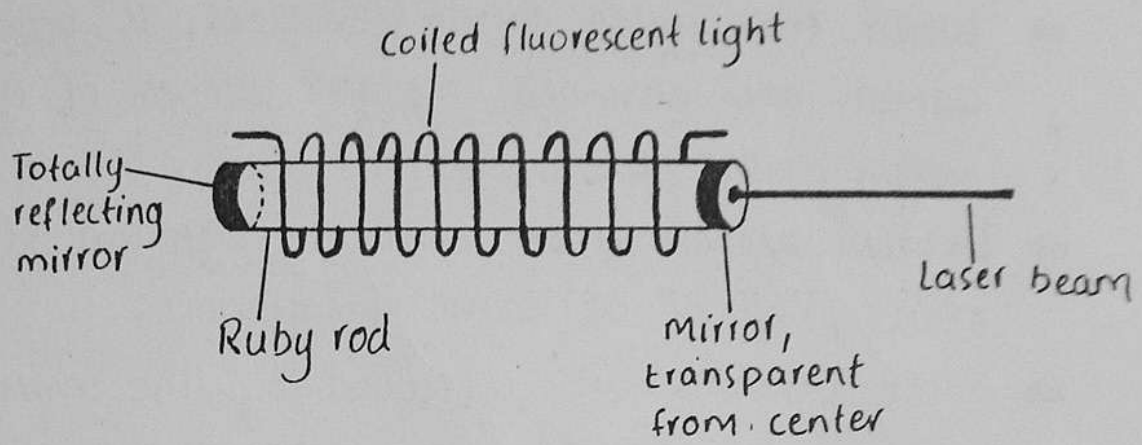 coiled fluorescent light
Totally
reflecting
mirror
Ruby rod
mirror,
transparent
from. center
Laser beam